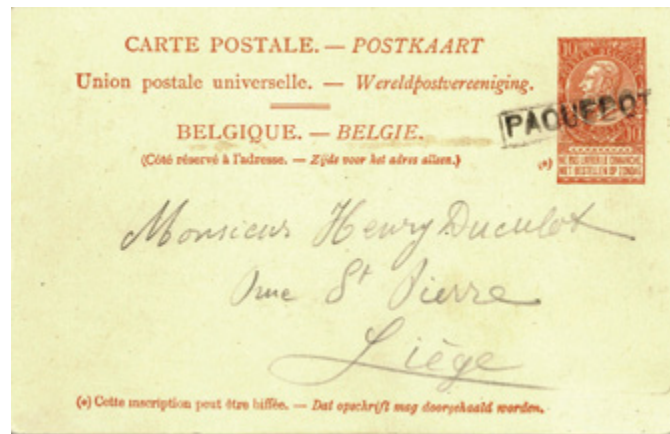 CARTE POSTALE. — POSTKAART
Union postale universelle. — Wereldpostvereeniging.
BELGIQUE. — BELGIE.
(Côté réservé à l'adresse. — Zijde voor het adres alleen.)
10 10
PAQUEBOT
(*)
NE PAS LIVRER LE DIMANCHE
NIET BESTELLEN OP ZONDAG
Monsieur Henry Duculot
rue St Pierre
Liège
(*) Cette inscription peut être biffée. — Dat opschrift mag doorgehaald worden.